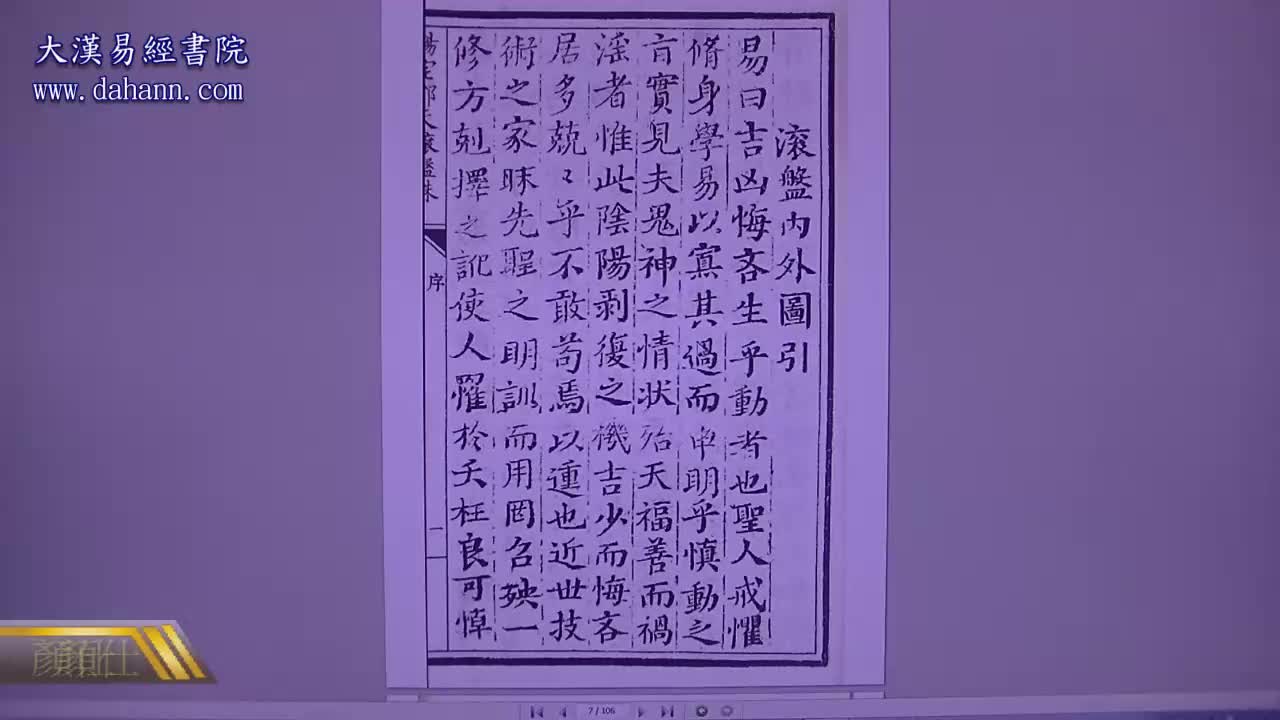 大漢易經書院
www.dahann.com
滾盤內外圖引
易曰吉凶悔吝生乎動者也聖人戒懼
脩身學易以寡其過而申明乎慎動之
旨實見夫鬼神之情狀殆天福善而禍
淫者惟此陰陽剥復之機吉少而悔吝
居多兢〻乎不敢苟焉以運也近世技
術之家昧先聖之明訓而用罔召殃一
修方剋擇之訛使人罹於夭枉良可悼
序
一
7 / 106